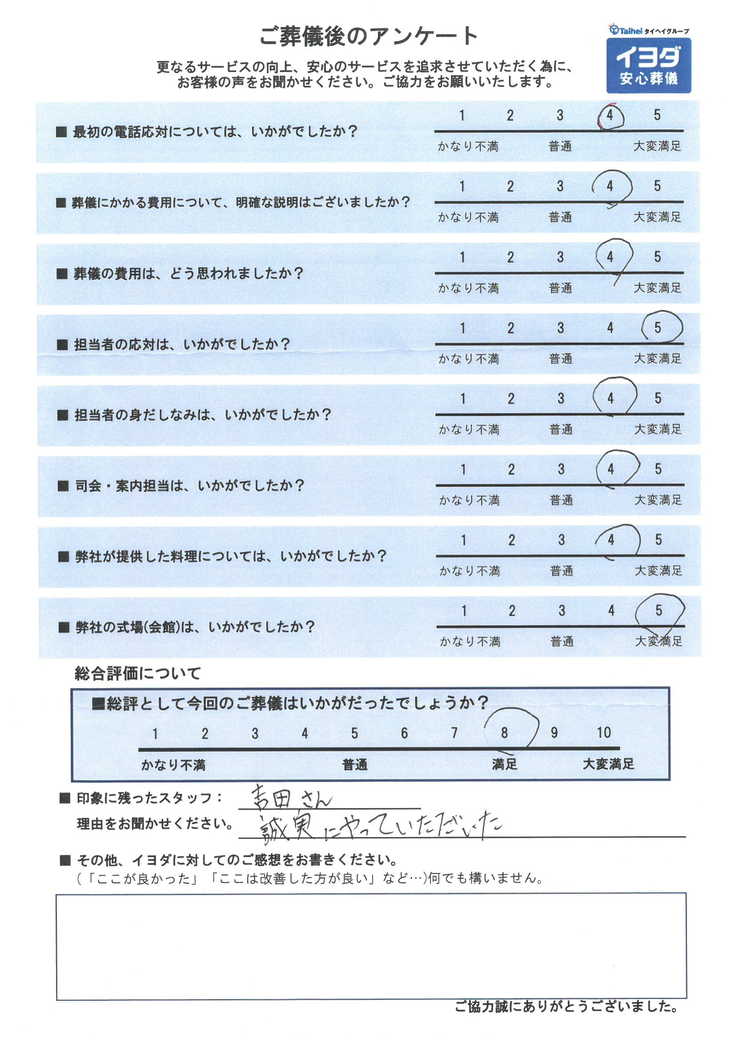 ご葬儀後のアンケート
Taihei タイヘイグループ
イヨダ
安心葬儀
更なるサービスの向上、安心のサービスを追求させていただく為に、
お客様の声をお聞かせください。ご協力をお願いいたします。
■ 最初の電話応対については、いかがでしたか？
1 2 3 4 5
かなり不満 普通 大変満足
■ 葬儀にかかる費用について、明確な説明はございましたか？
1 2 3 4 5
かなり不満 普通 大変満足
■ 葬儀の費用は、どう思われましたか？
1 2 3 4 5
かなり不満 普通 大変満足
■ 担当者の応対は、いかがでしたか？
1 2 3 4 5
かなり不満 普通 大変満足
■ 担当者の身だしなみは、いかがでしたか？
1 2 3 4 5
かなり不満 普通 大変満足
■ 司会・案内担当は、いかがでしたか？
1 2 3 4 5
かなり不満 普通 大変満足
■ 弊社が提供した料理については、いかがでしたか？
1 2 3 4 5
かなり不満 普通 大変満足
■ 弊社の式場(会館)は、いかがでしたか？
1 2 3 4 5
かなり不満 普通 大変満足
総合評価について
■総評として今回のご葬儀はいかがだったでしょうか？
1 2 3 4 5 6 7 8 9 10
かなり不満 普通 満足 大変満足
■ 印象に残ったスタッフ： 吉田さん
理由をお聞かせください。 誠実にやっていただいた
■ その他、イヨダに対してのご感想をお書きください。
(「ここが良かった」「ここは改善した方が良い」など…)何でも構いません。
ご協力誠にありがとうございました。